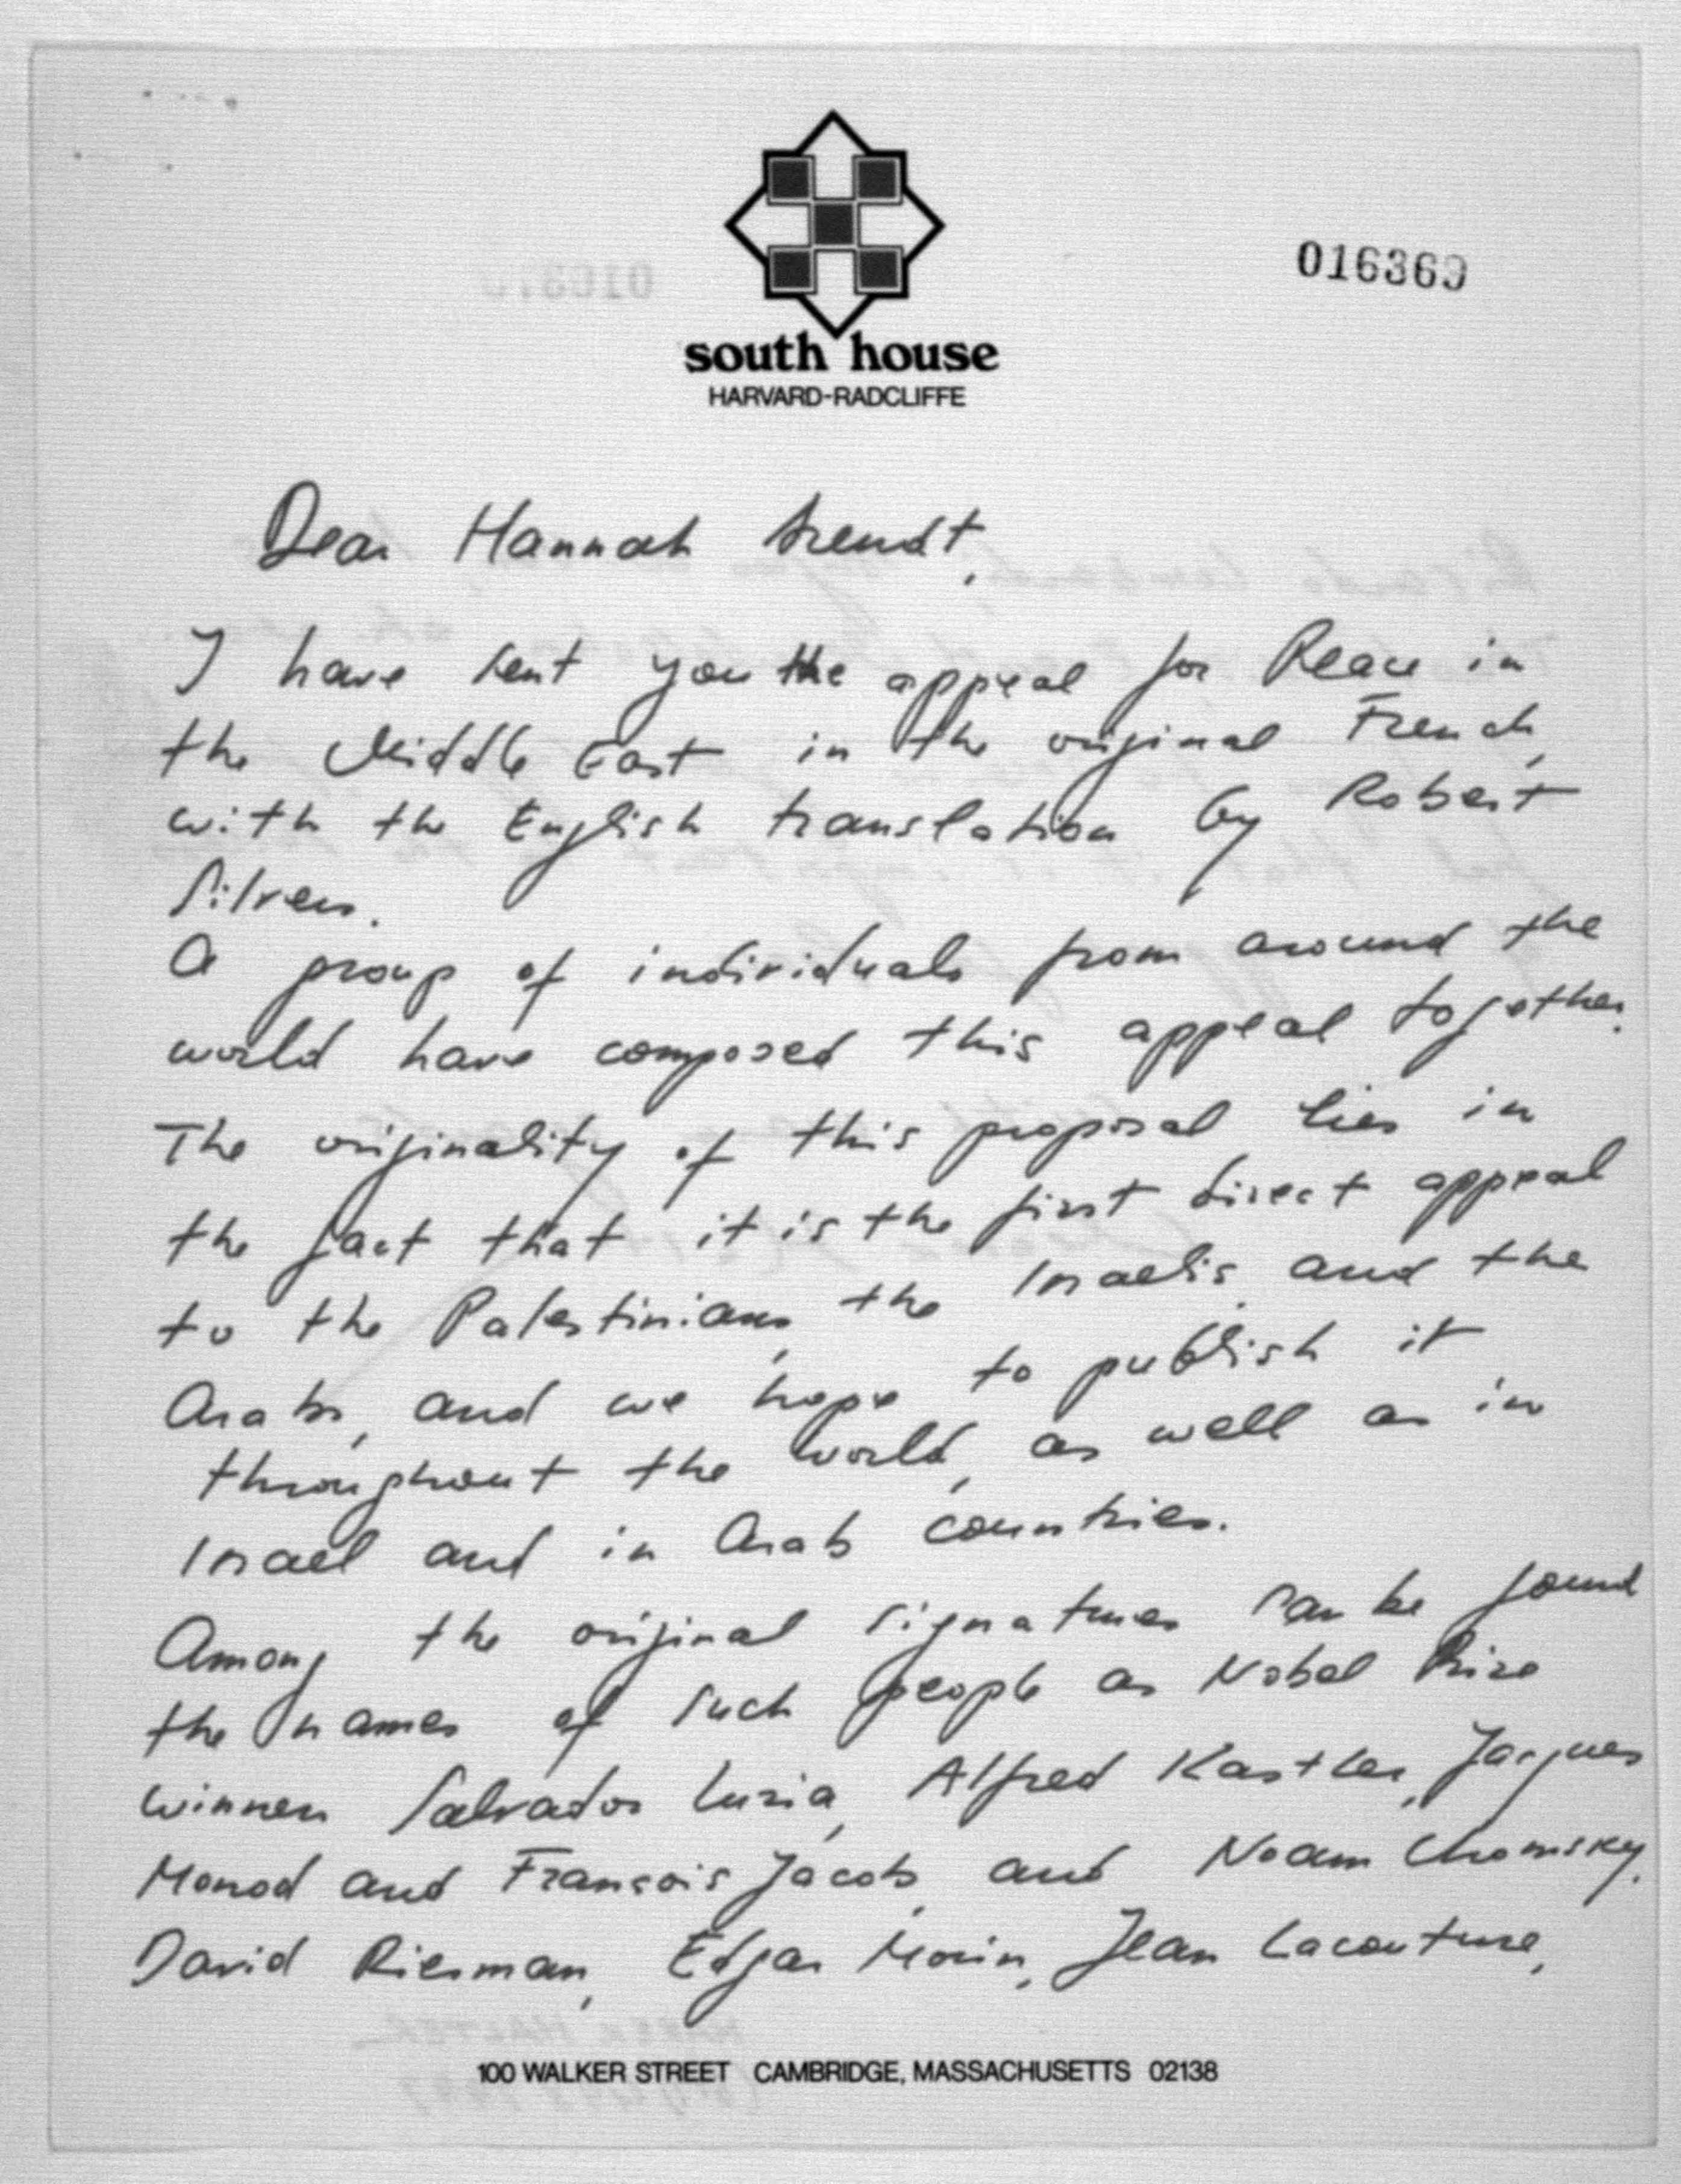 016369
south house
HARVARD-RADCLIFFE
Dear Hannah Arendt,
I have sent you the appeal for Peace in
the Middle East in the original French,
with the English translation by Robert
Silvers.
A group of individuals from around the
world have composed this appeal together.
The originality of this proposal lies in
the fact that it is the first direct appeal
to the Palestinians, the Israelis, and the
Arabs, and we hope to publish it
throughout the world, as well as in
Israel and in Arab countries.
Among the original signatures can be found
the names of such people as Nobel Prize
winners Salvador Luria, Alfred Kastler, Jacques
Monod and François Jacob, and Noam Chomsky,
David Riesman, Edgar Morin, Jean Lacouture,
100 WALKER STREET CAMBRIDGE, MASSACHUSETTS 02138